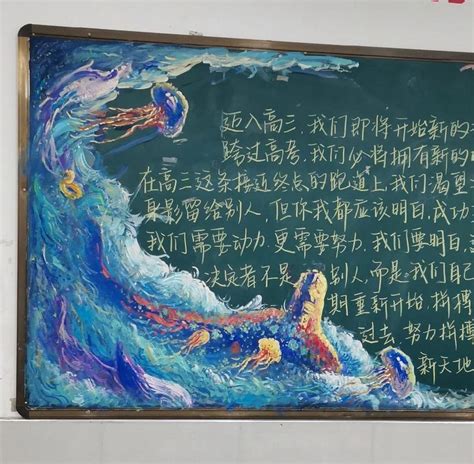 迈入高三,我们即将开始新的
跨过高考,我们必将拥有新的
在高三这条接近终点的跑道上,我们渴望
身影留给别人,但你我都应该明白,成功
我们需要动力,更需要努力,我们要明白
决定者不是别人,而是我们自己
期重新开始,拼搏
过去,努力拼搏
新天地